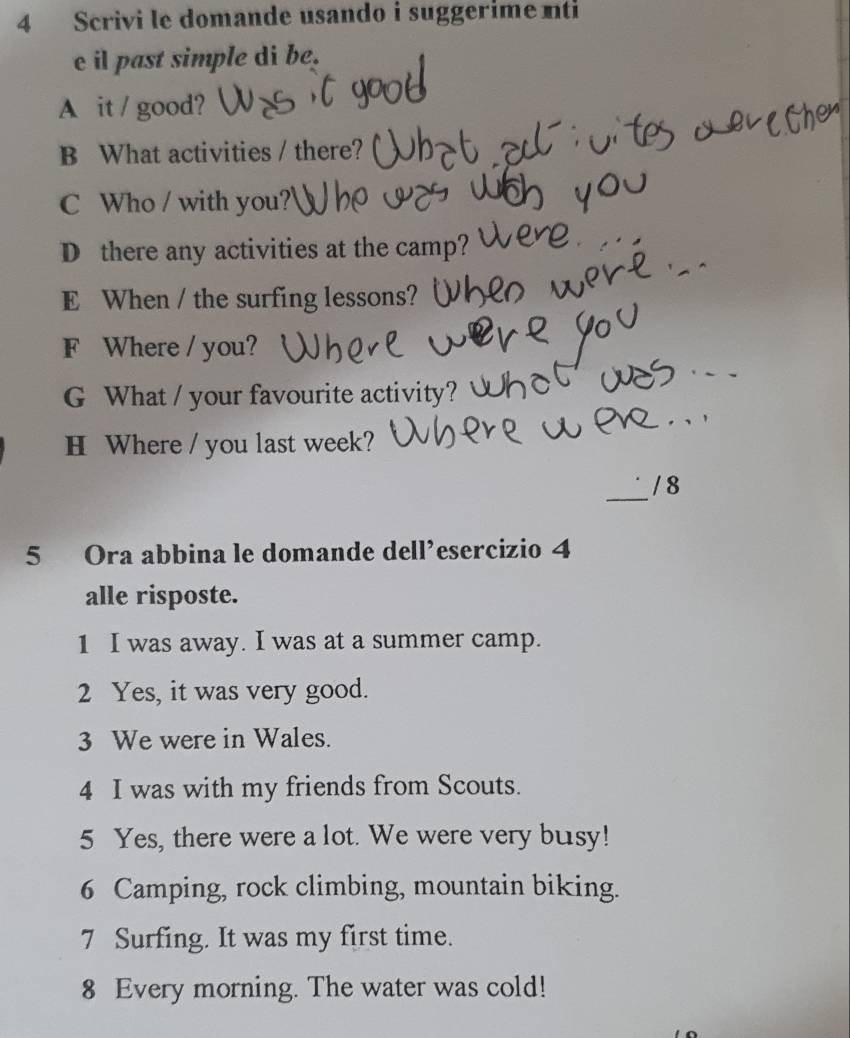 4 Scrivi le domande usando i suggerimenti
e il past simple di be.
A it / good? Was it good
B What activities / there? What activites were ther
C Who / with you? Who was with you
D there any activities at the camp? Were...
E When / the surfing lessons? When were...
F Where / you? Where were you
G What / your favourite activity? what was...
H Where / you last week? Where were...
___ / 8
5 Ora abbina le domande dell'esercizio 4
alle risposte.
1 I was away. I was at a summer camp.
2 Yes, it was very good.
3 We were in Wales.
4 I was with my friends from Scouts.
5 Yes, there were a lot. We were very busy!
6 Camping, rock climbing, mountain biking.
7 Surfing. It was my first time.
8 Every morning. The water was cold!